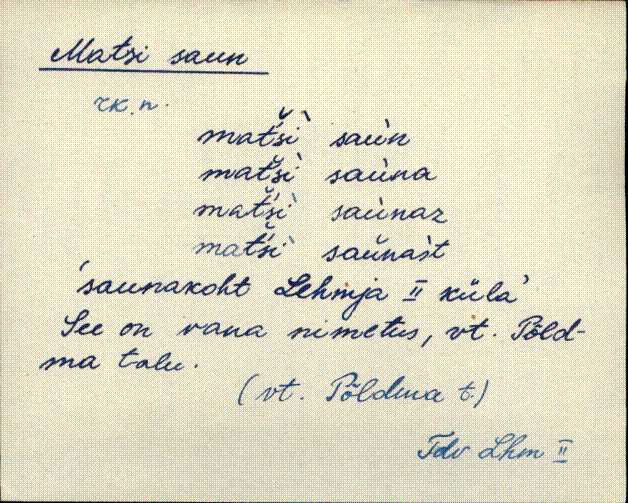 Matsi saun
rk. n.
mat̆śì saùn
mat̆śì saùna
mat̆śì saùnaz
mat̆śì saŭnas̀t
'saunakoht Lehmja II küla'
See on vana nimetus, vt. Põld-
ma talu.
(vt. Põldma t.)
Tdv Lhm II